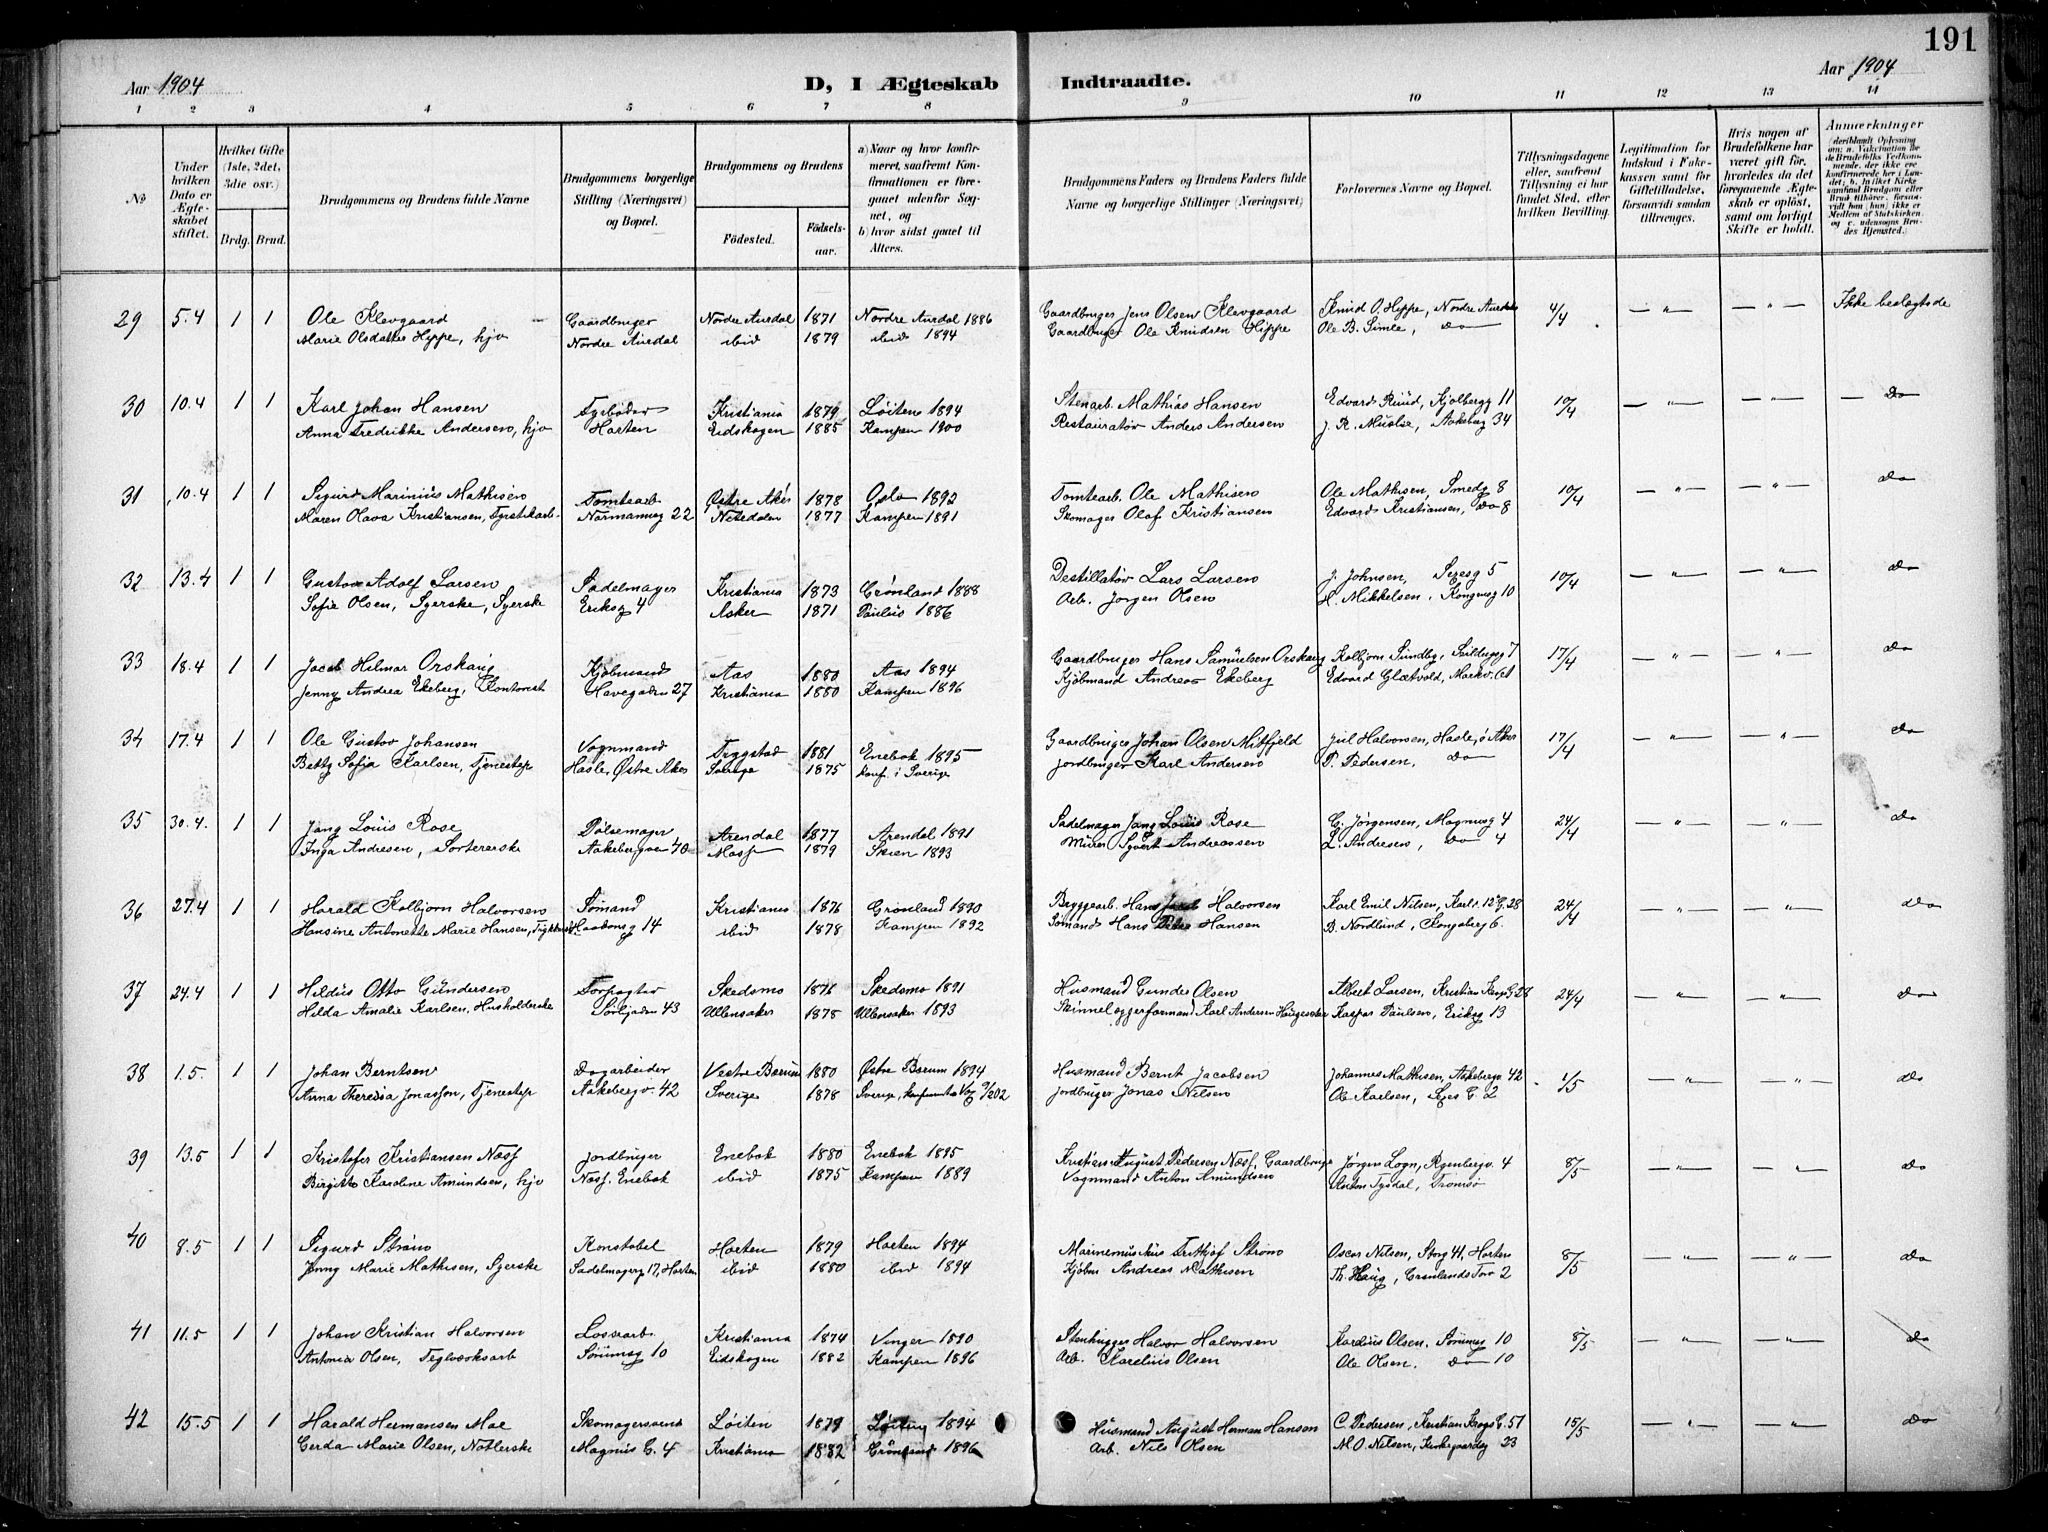 191
Aar 1904
D, I Ægteskab Indtraadte.
Aar 1904
1 2 3 4 5 6 7 8 9 10 11 12 13 14
No
Under hvilken Dato er Ægteskabet stiftet.
Hvilket Gifte (1ste, 2det, 3die osv.)
Brdg. Brud.
Brudgommens og Brudens fulde Navne
Brudgommens borgerlige Stilling (Næringsvei) og Bopæl.
Brudgommens og Brudens
Fødested.
Fødselsaar.
a) Naar og hvor konfirmeret, saafremt Konfirmationen er foregaaet udenfor Sognet, og
b) hvor sidst gaaet til Alters.
Brudgommens Faders og Brudens Faders fulde Navne og borgerlige Stillinger (Næringsvei)
Forlovernes Navne og Bopæl.
Tillysningsdagene eller, saafremt Tillysning ei har fundet Sted, efter hvilken Bevilling.
Legitimation for Indskud i Enkekassen samt for Giftetilladelse, forsaavidt saadan tiltrænges.
Hvis nogen af Brudefolkene har været gift før, hvorledes da det foregaaende Ægteskab er opløst, samt om lovligt Skifte er holdt.
Anmærkninger
29 5.4 1 1 Ole Klevgaard Gaardbruger Nordre Aurdal 1871 Nordre Aurdal 1886 Gaardbruger Jens Olsen Klevgaard Knud O. Hippe, Nordre Aurdal 4/4 — " — — " — Ikke beslægtede
Marie Olsdatter Hippe, hjv Nordre Aurdal ibid 1879 ibid 1894 Gaardbruger Ole Knudsen Hippe Ole B. Simle, Do
30 10.4 1 1 Karl Johan Hansen Fyrbøder Kristiania 1879 Løiten 1894 Stenarb. Mathias Hansen Edvard Ruud, Kjølbergg 11 10/4 — " — — " — Do
Anna Fredrikke Andersen, hjv Horten Eidskogen 1885 Kampen 1900 Restauratør Anders Andersen J. R. Aakebg 34
31 10.4 1 1 Sigurd Marinius Mathisen Tomtearb Østre Aker 1878 Oslo 1892 Tomtearb. Ole Mathisen Ole Mathisen, Smedg 8 10/4 — " — — " — Do
Maren Olava Kristiansen, Fyrstikarb. Normannsg 22 Nitedalen 1877 Kampen 1891 Skomager Olaf Kristiansen Edvard Kristiansen, Do 8
32 13.4 1 1 Gustav Adolf Larsen Sadelmager Kristiania 1873 Grønland 1888 Destillatør Lars Larsen J. Johnsen, Sexesg 5 10/4 — " — — " — Do
Sofie Olsen, Syerske, Syerske Eriksg 4 Asker 1871 Paulus 1886 Arb. Jørgen Olsen H. Mikkelsen, Kongensg 10
33 18.4 1 1 Jacob Hilmar Orskaug Kjøbmand Aas 1880 Aas 1894 Gaardbruger Hans Samuelsen Orskaug Kolbjørn Sundby, 7 17/4 — " — — " — Do
Jenny Andrea Ekeberg, Kontorist Havegaden 27 Kristiania 1880 Kampen 1896 Kjøbmand Andreas Ekeberg Edvard Glætvold, Markv. 61
34 17.4 1 1 Ole Gustav Johansen Vognmand Trygstad 1881 Enebak 1895 Gaardbruger Johan Olsen Mitfjeld Jul Halvorsen, Hasle, ø Aker 17/4 — " — — " — Do
Betty Sofia Karlsen, Tjenestep Hasle, Østre Aker Sverige 1875 konf. i Sverige Jordbruger Karl Andersen P. Pedersen, Do
35 30.4. 1 1 Jang Louis Rose Pølsemager Arendal 1877 Arendal 1891 Sadelmager Jang Louis Rose G. Jørgensen, Magnusg 4 24/4 — " — — " — Do
Inga Andresen, Sortererske Aakebergvn 40 Moss 1879 Skien 1893 Murer Syvert Andreassen L. Andresen, Do 4
36 27.4 1 1 Harald Kolbjørn Halvorsen Sømand Kristiania 1876 Grønland 1890 Bryggearb. Hans Jacob Halvorsen Karl Emil Nilsen, Karl d. 12 G. 28 24/4 — " — — " — Do
Hansine Antonette Marie Hansen, Haakonsg 14 ibid 1878 Kampen 1892 Sømand Hans Peter Hansen B. Nordlund, Kongsbergg 6.
37 24.4 1 1 Hildus Otto Gundersen Forpagter Skedsmo 1876 Skedsmo 1891 Husmand Gunder Olsen Albert Larsen, Kristian Krogs G. 28 24/4 — " — — " — Do
Hilda Amalie Karlsen, Husholderske Sørligaden 43 Ullensaker 1878 Ullensaker 1893 Skinnelæggerformand Karl Andersen Haugesæter Kaspar Paulsen, Eriksg 13
38 1.5. 1 1 Johan Berntsen Dagarbeider Vestre Bærum 1880 Østre Bærum 1894 Husmand Bernt Jacobsen Johannes Mathisen, Aakebergv. 42 1/5 — " — — " — Do
Anna Theresia Jonasson, Tjenestep Aakebergv. 42 Sverige 1878 Sverige, Jordbruger Jonas Nilsen Ole Karlsen, Sexes G. 2
39 13.5 1 1 Kristofer Kristiansen Næss Jordbruger Enebak 1880 Enebak 1895 Kristian August Pedersen Næss, Gaardbruger Jørgen Logn, Ryenbergv. 4 8/5 — " — — " — Do
Birgitte Karoline Amundsen, hjv Næss, Enebak ibid 1875 Kampen 1889 Vognmand Anton Amundsen Anton Tysdal, Tromsø
40 8.5 1 1 Sigurd Strøm Konstabel Horten 1879 Horten 1894 Marinemusikus Fritjof Strøm Oscar Nilsen, Storg 41, Horten 8/5 — " — — " — Do
Jenny Marie Mathisen, Syerske Sadelmagerg 17, Horten ibid 1880 ibid 1894 Kjøbm Andreas Mathisen Th. Haug, Grønlands Torv 2
41 11.5 1 1 Johan Kristian Halvorsen Lossearb. Kristiania 1874 Vinger 1890 Stenhugger Halvor Halvorsen Karelius Olsen, Sørumsg 10 8/5 — " — — " — Do
Antonia Olsen, Teglværksarb Sørumsg 10 Eidskogen 1882 Kampen 1896 Arb. Karelius Olsen Ole Olsen. Do 10
42 15.5 1 1 Harald Hermansen Moe Skomagersvend Løiten 1879 Løiten 1894 Husmand August Herman Hansen C. Pedersen, Kristian Krogs G. 51 15/5 — " — — " — Do
Gerda Marie Olsen, Notlerske Magnus G. 4 Kristiania 1882 Grønland 1896 Arb. Nils Olsen M. O. Nilsen, Kirkegaardsg 23